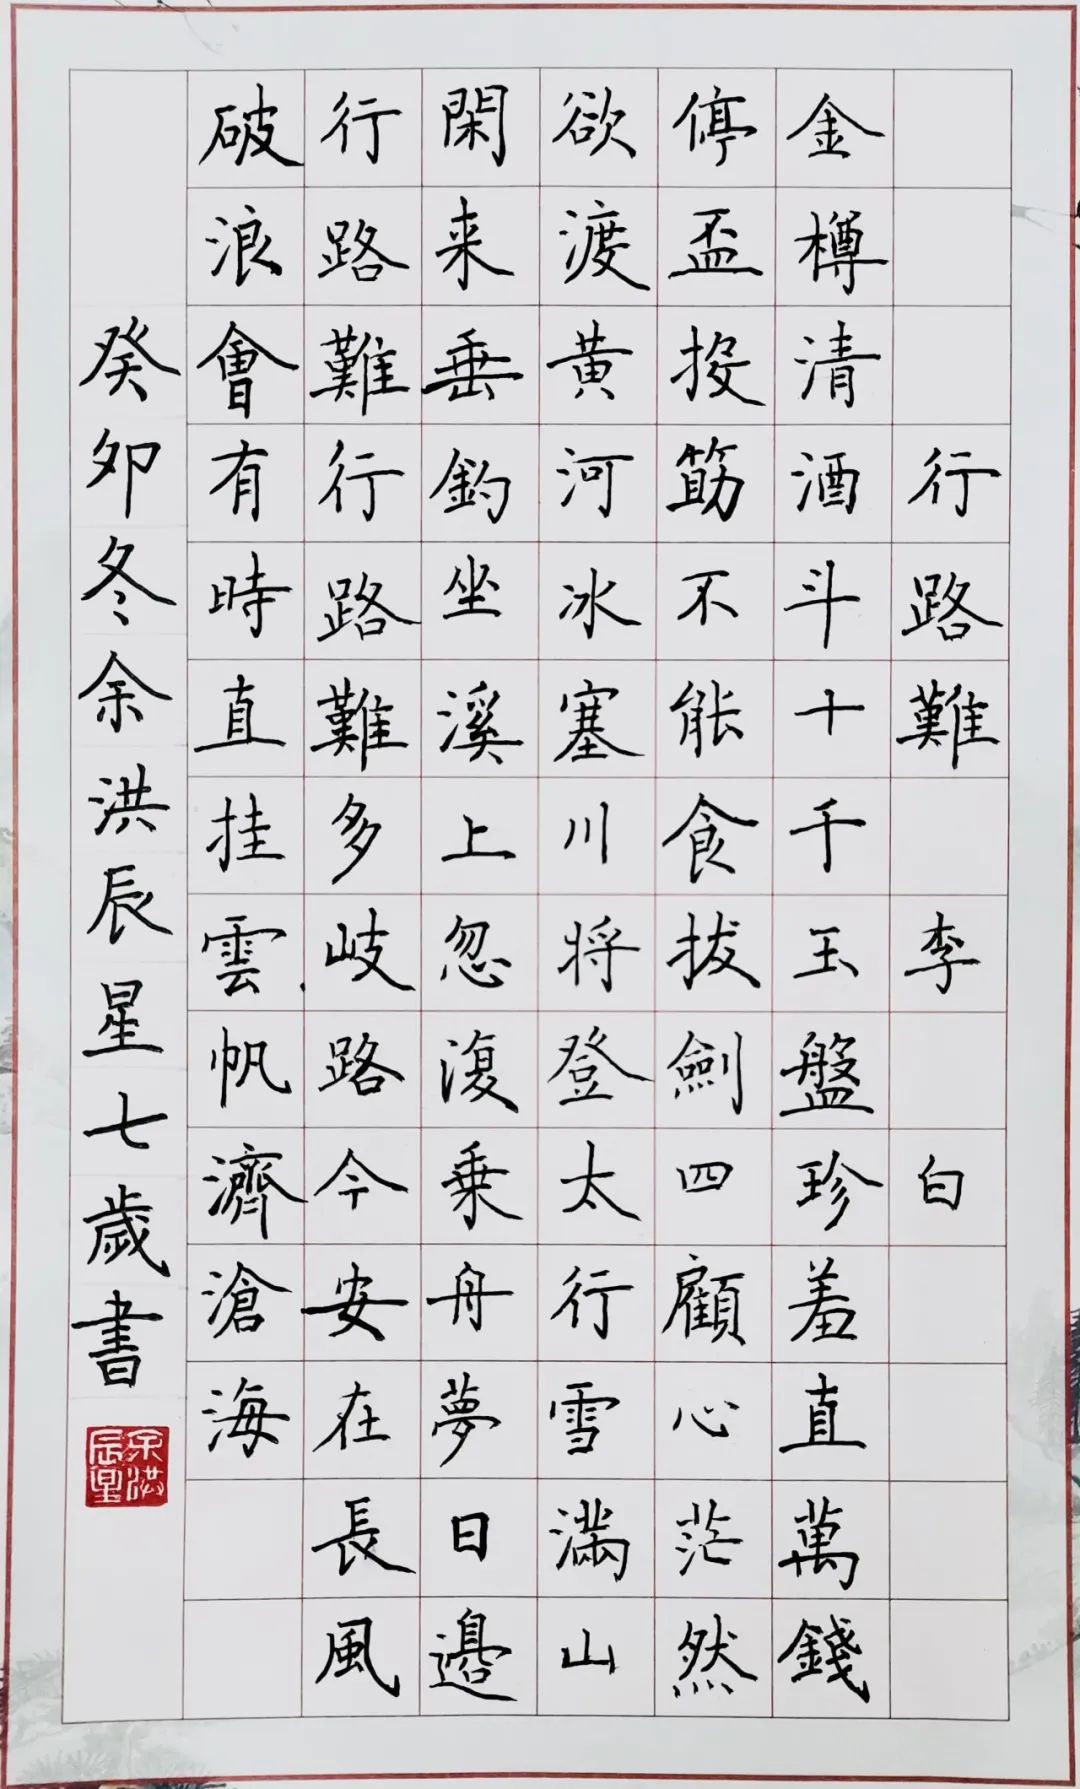 行路難 李白
金樽清酒斗十千玉盤珍羞直萬錢
停盃投筯不能食拔劍四顧心茫然
欲渡黄河冰塞川将登太行雪滿山
閑来垂釣坐溪上忽復乗舟夢日邊
行路難行路難多岐路今安在長風
破浪會有時直挂雲帆濟滄海
癸卯冬余洪辰星七歲書
余洪辰星